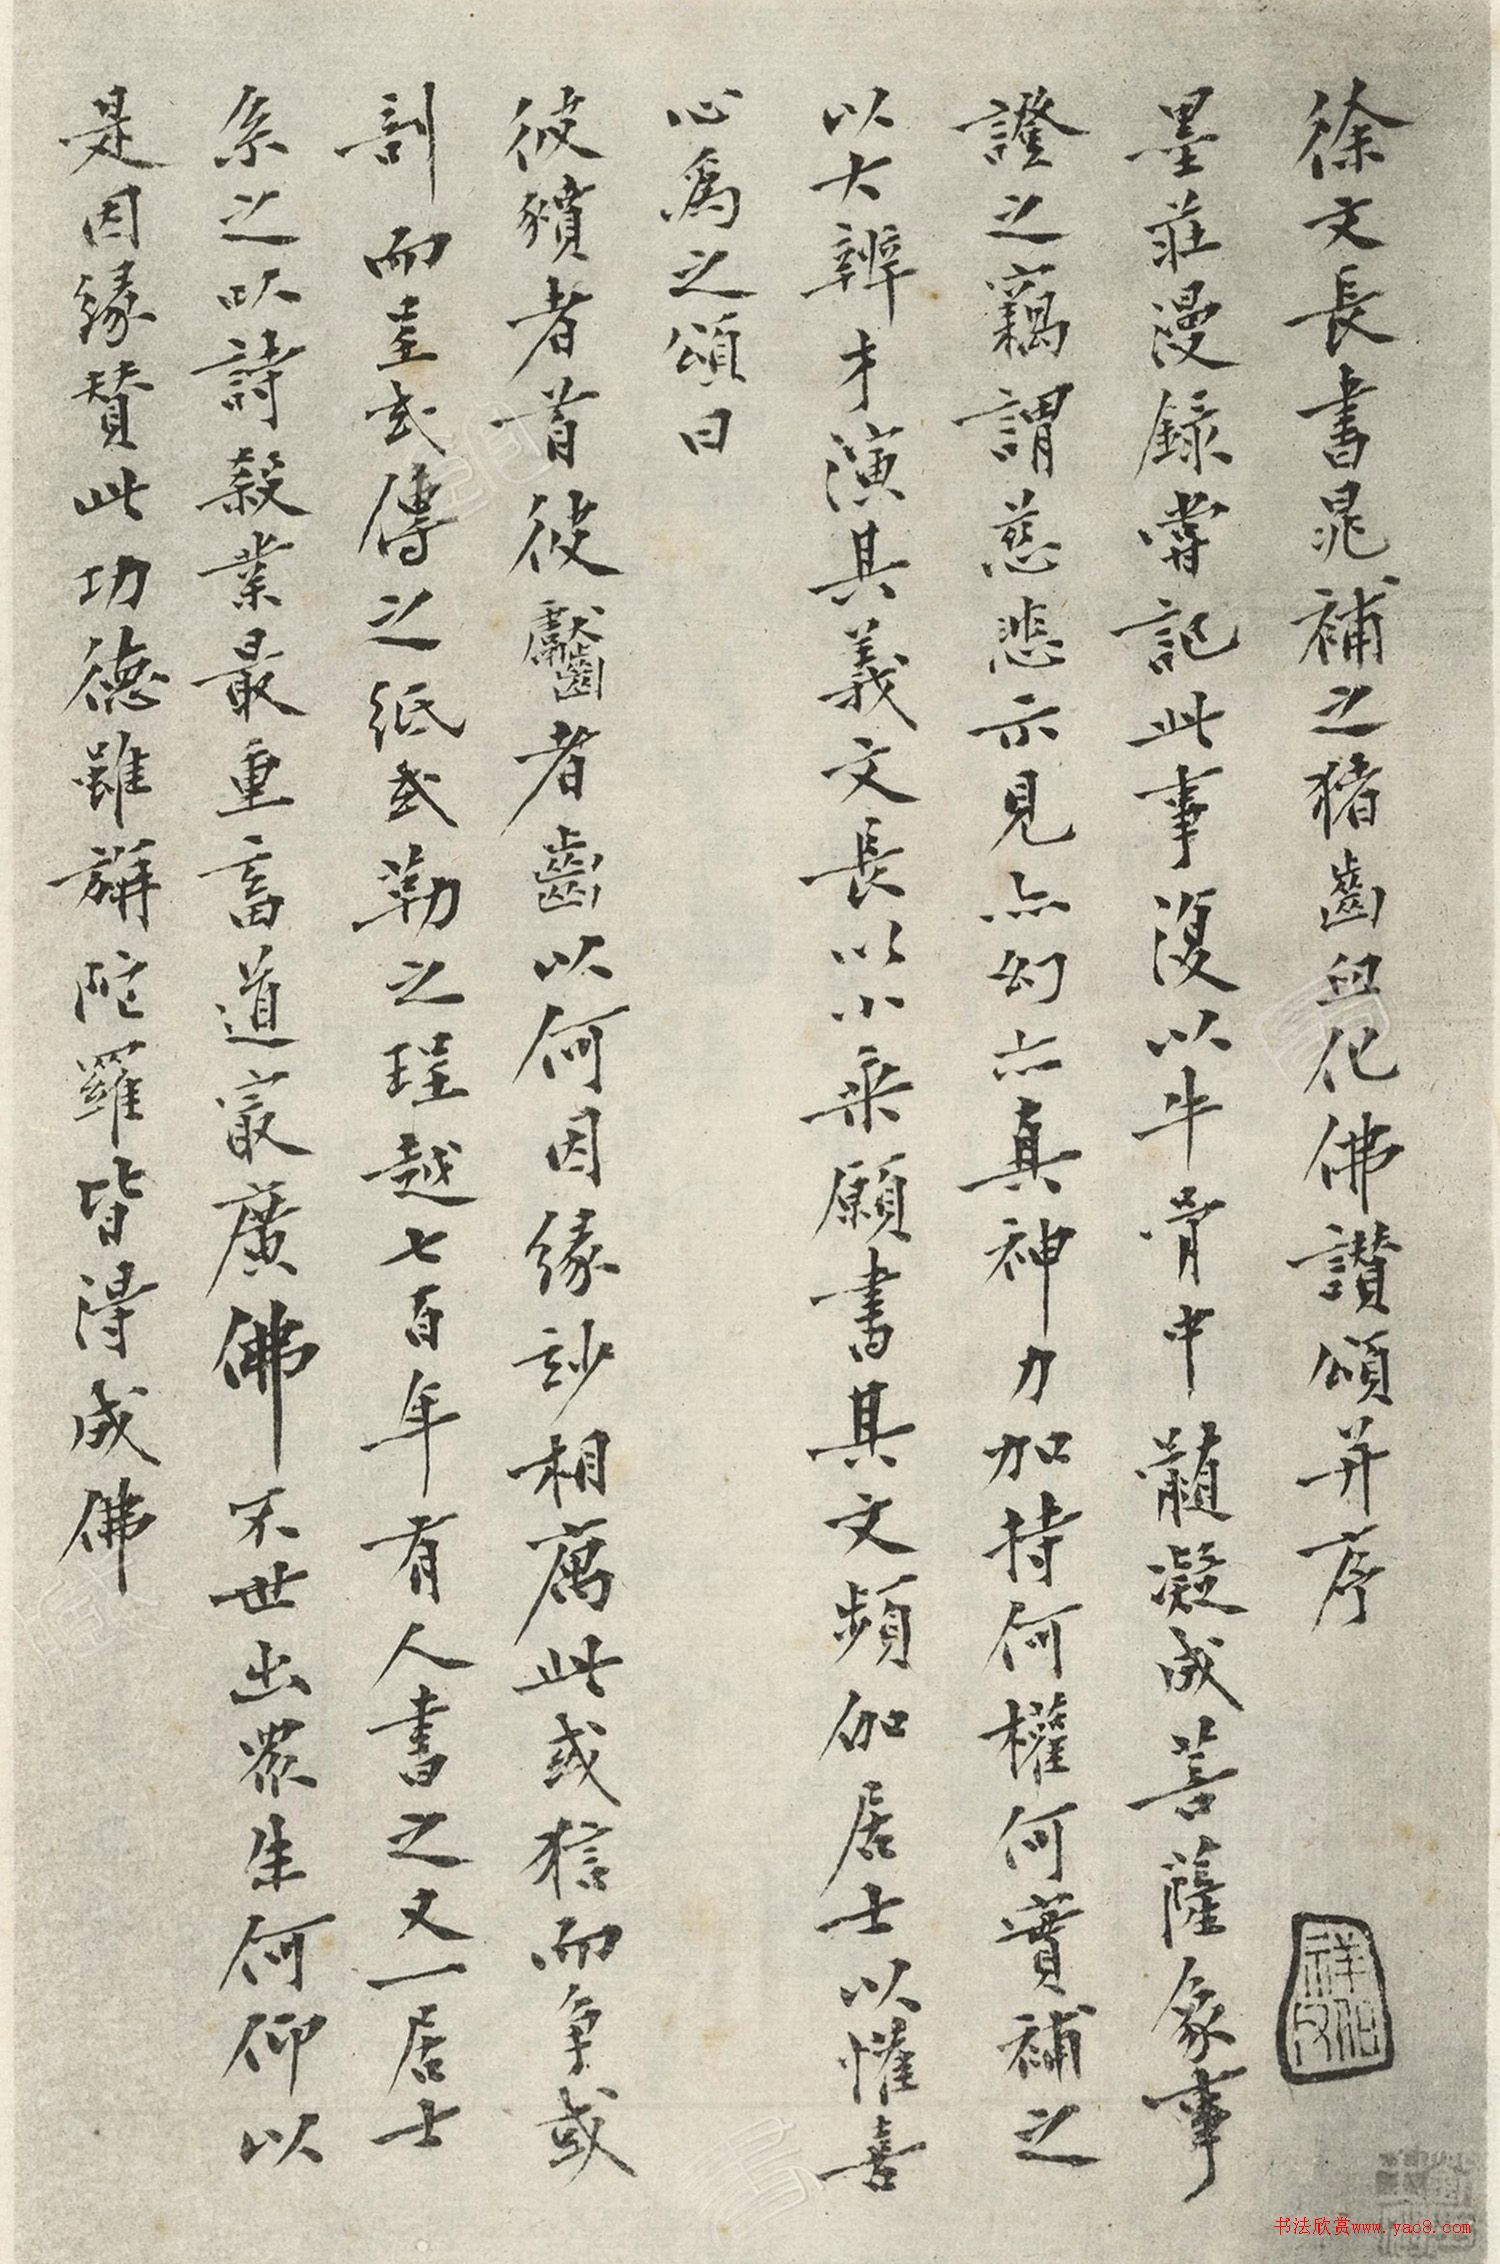 徐文長書晁補之猪齒臼化佛讃頌并序
墨莊漫録嘗記此事復以牛骨中髓凝成菩薩象事
證之竊謂慈悲示見亦幻亦真神力加持何權何實補之
以大辨才演其義文長以小乘願書其文頻伽居士以懽喜
心爲之頌曰
彼豶者首彼齾者齒以何因緣玅相寓此或狺而爭或
割而 或傳之紙或勒之珵越七百年有人書之又一居士
系之以詩殺業最重畜道宼廣佛不世出衆生何仰以
是因緣賛此功德雖旃陀羅皆得成佛
祥伯
书法欣赏www.yac8.com